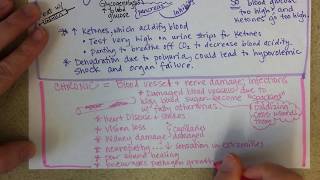 Glycogenolysis
↑ blood
glucose
pancreas
so blood
glucose
too high and
ketones go too high.
* ↑ Ketones, which acidify blood
• Test very high on urine strips for ketones
• Panting to breathe off CO2 to decrease blood acidity.
* Dehydration due to polyuria, could lead to hypovolemic
shock and organ failure.
CHRONIC = Blood vessel + nerve damage, infections
* Damaged blood vessels due to
high blood sugar become "spackled"
w/ fatty atheromas.
* Heart Disease & strokes
* Vision loss
* Kidney damage
capillaries
damaged
* Neuropathy... ↓ sensation in extremities
* poor wound healing
* encourages pathogen growth